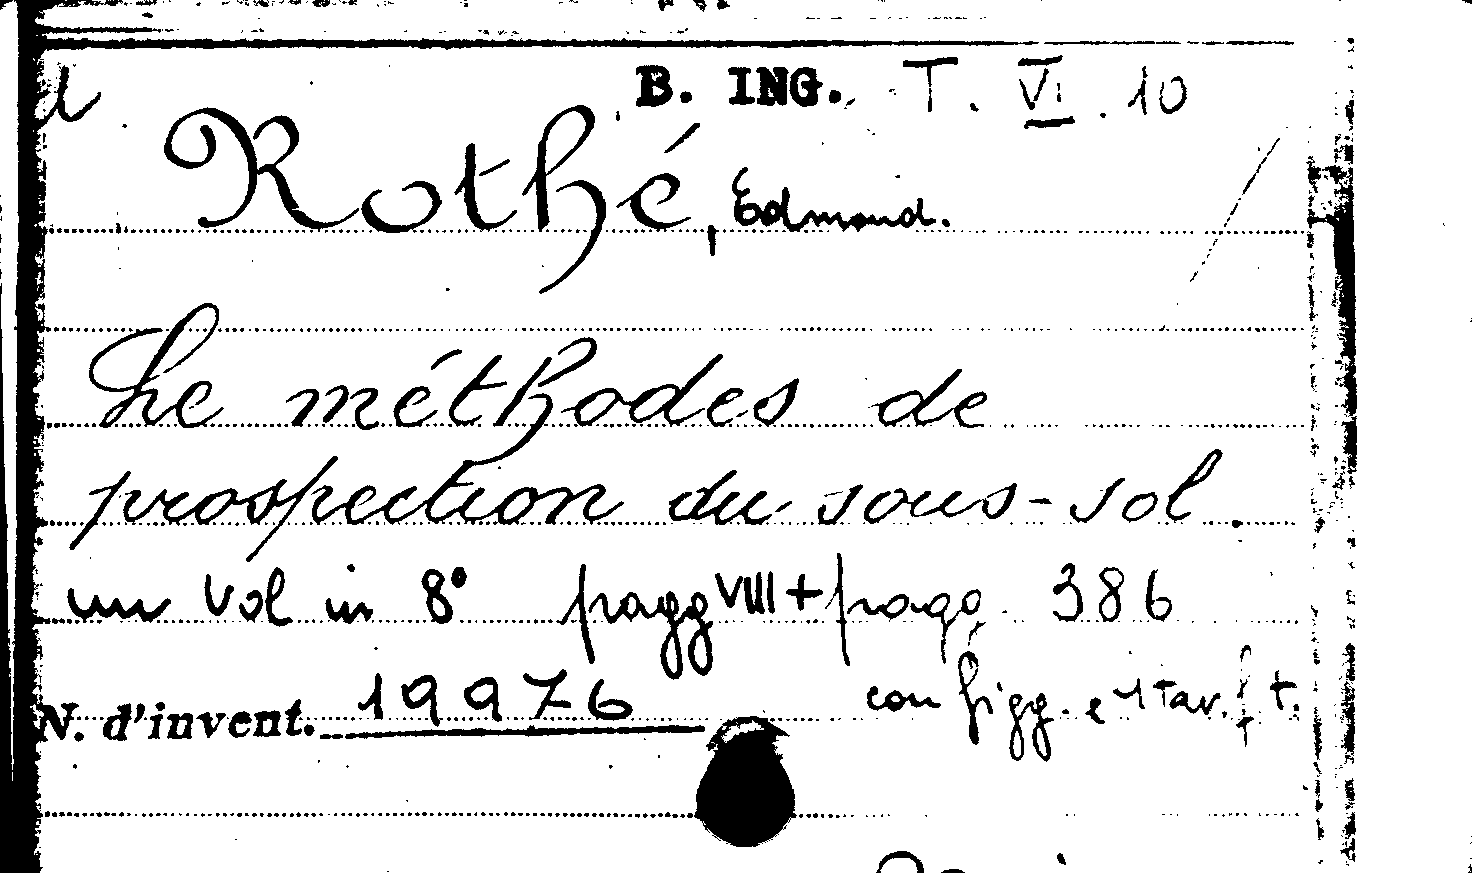 B. ING. T. VI. 10
Rothé, Edmond.
Le méthodes de
prospection du sous-sol.
un vol in 8° pagg VIII + pagg. 386
con figg. e 1 tav. f. t.
N. d'invent. 19976